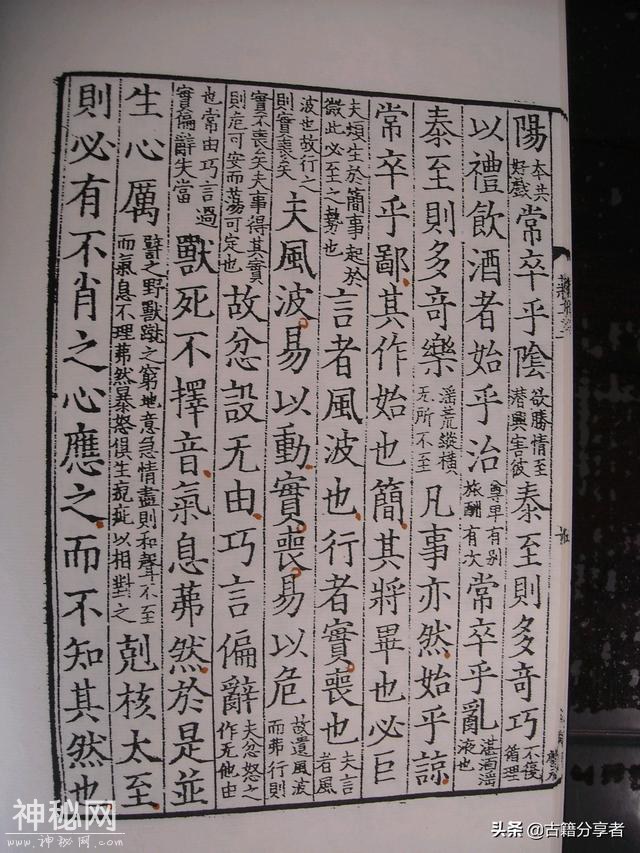 陽本共好戲常卒乎陰欲勝情至潛興害彼泰至則多奇巧不復循理
以禮飲酒者始乎治尊卑有別旅酬有次常卒乎亂湛酒滛液也
泰至則多奇樂滛荒縱橫无所不至凡事亦然始乎諒
常卒乎鄙其作始也簡其將畢也必巨
夫煩生於簡事起於微此必至之勢也言者風波也行者實喪也夫言者風
波也故行之則實喪矣夫風波易以動實喪易以危故遺風波而弗行則
實不喪矣夫事得其實則危可安而蕩可定也故忿設无由巧言偏辭夫忿怒之作无他由
也常由巧言過實偏辭失當獸死不擇音氣息茀然於是並
生心厲譬之野獸蹴之窮地意急情盡則和聲不至而氣息不理茀然暴怒俱生疵以相對之剋核太至
則必有不肖之心應之而不知其然也
神秘网
www.神秘网.com
头条 @古籍分享者